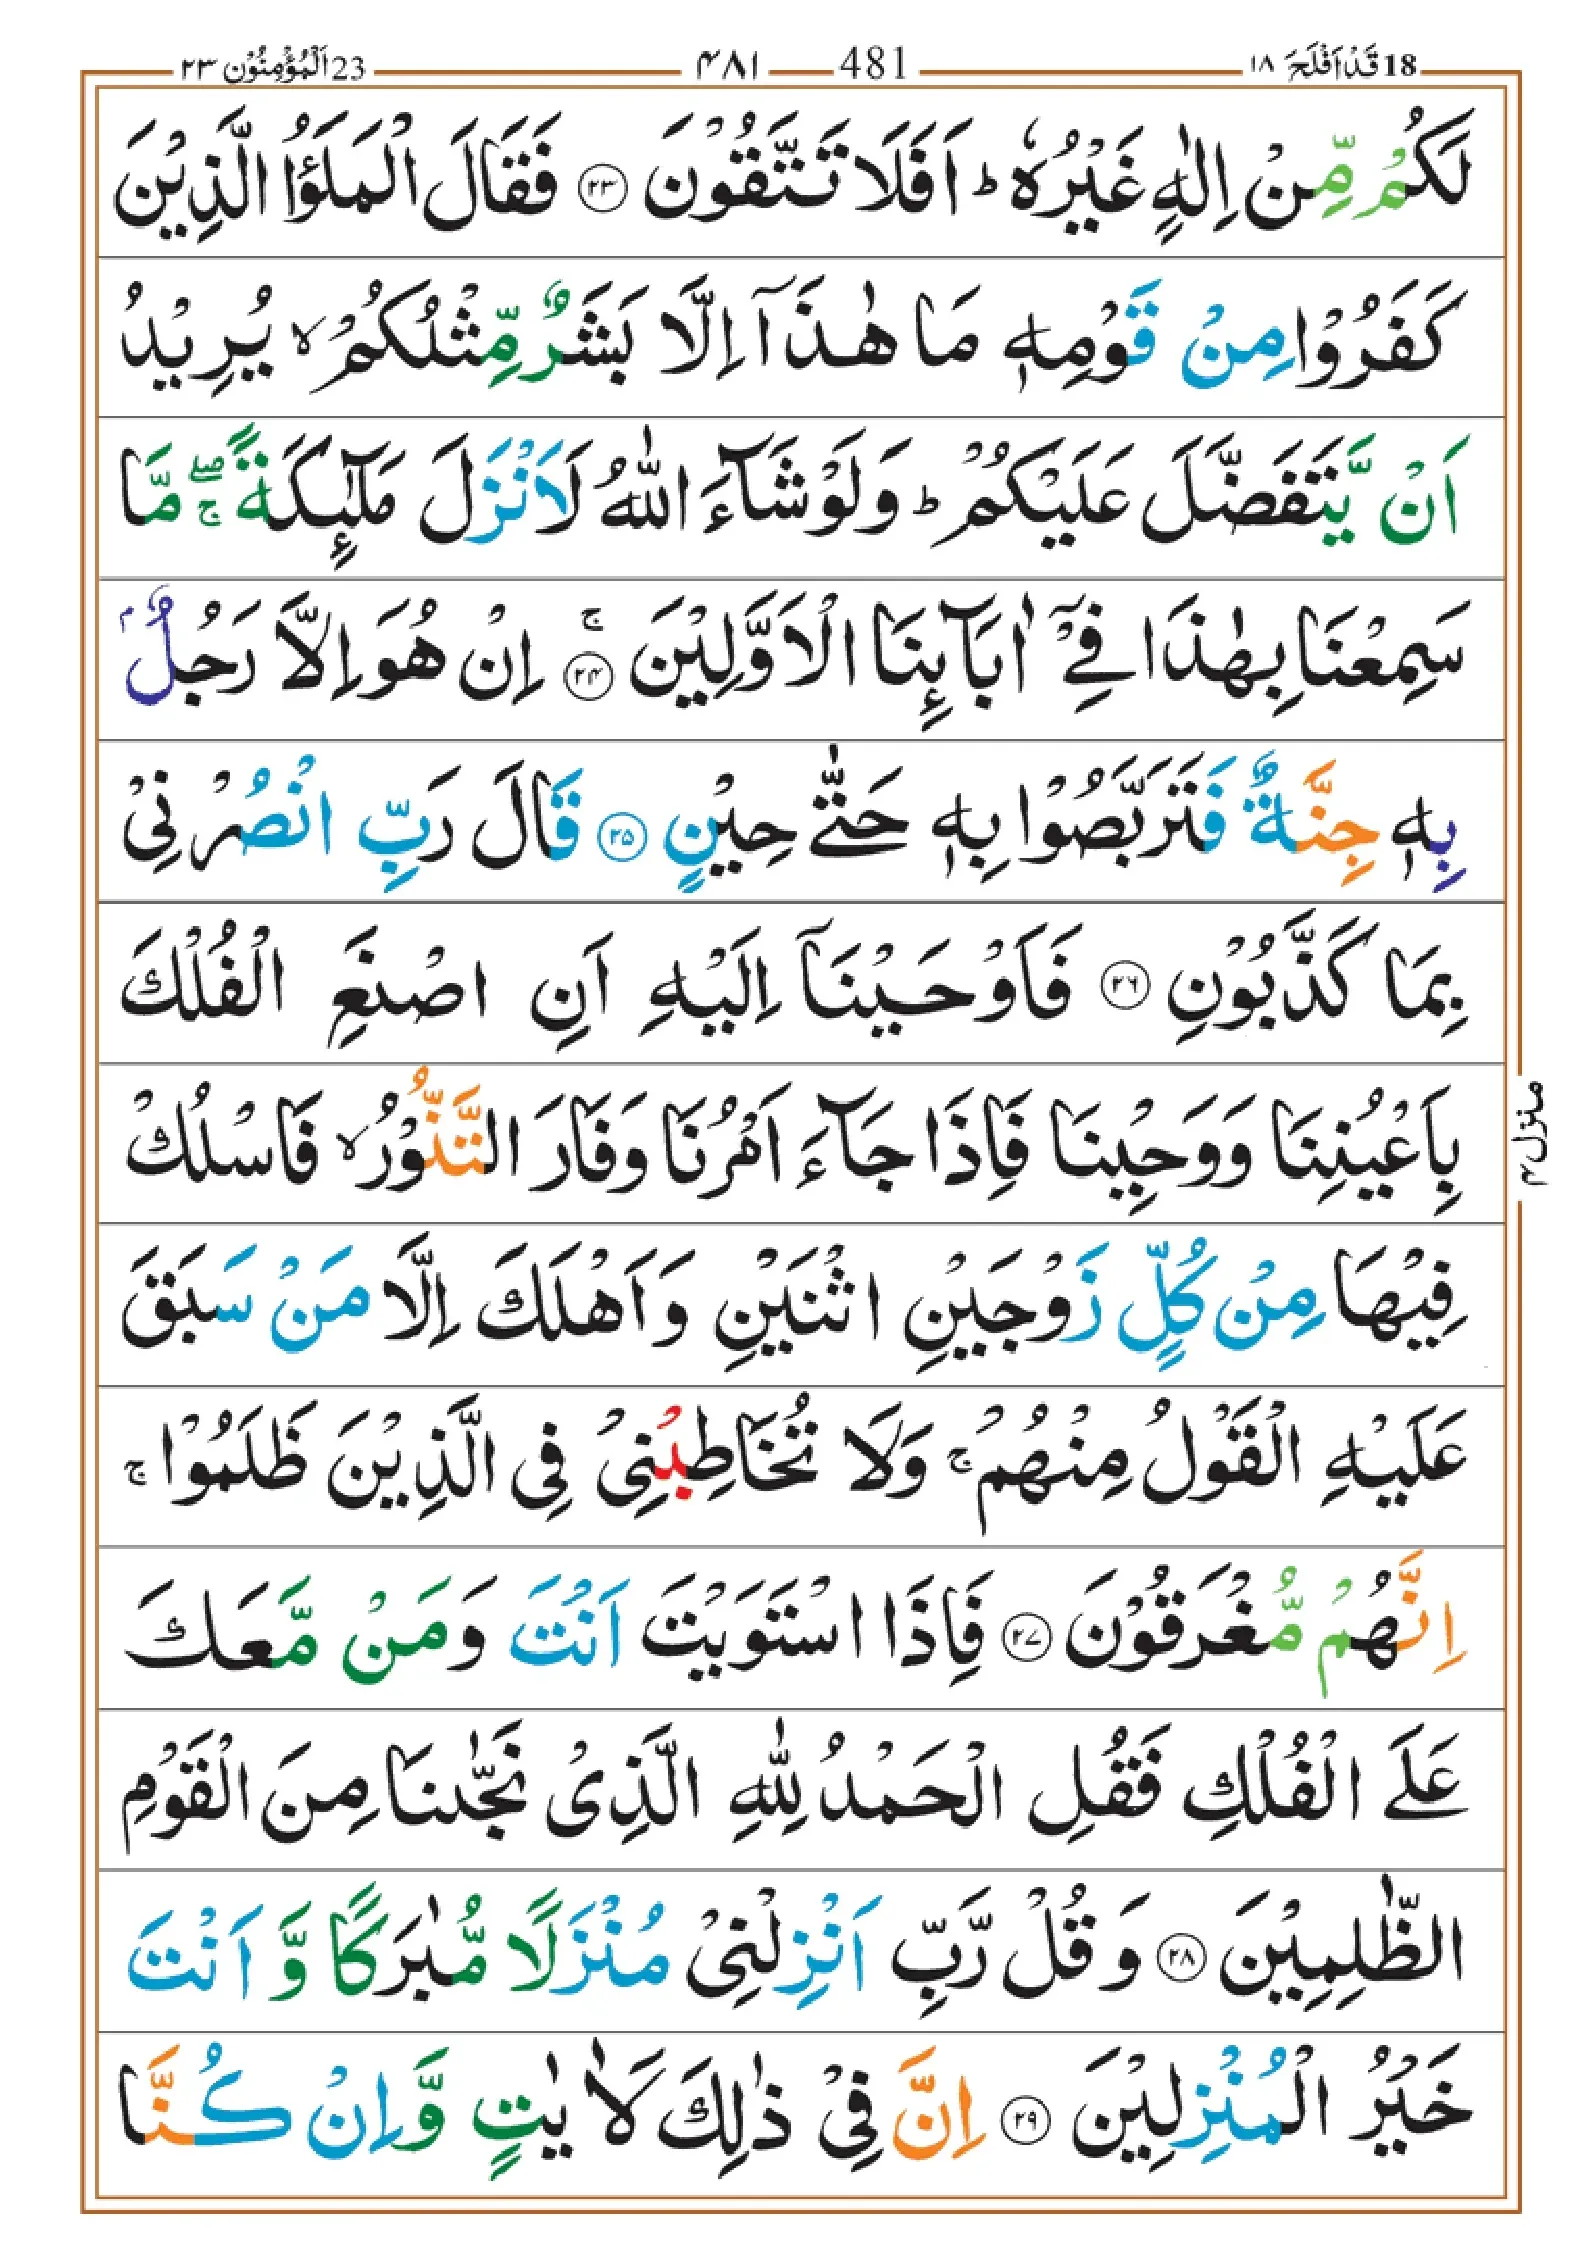 18 قَدْ اَفْلَحَ ۱۸ 481 ۴۸۱ 23 اَلْمُؤْمِنُوْن ۲۳
لَكُمْ مِّنْ اِلٰهٍ غَيْرُهٗ ؕ اَفَلَا تَتَّقُوْنَ ۲۳ فَقَالَ الْمَلَؤُا الَّذِيْنَ
كَفَرُوْا مِنْ قَوْمِهٖ مَا هٰذَاۤ اِلَّا بَشَرٌ مِّثْلُكُمْ ۙ يُرِيْدُ
اَنْ يَّتَفَضَّلَ عَلَيْكُمْ ؕ وَلَوْ شَآءَ اللّٰهُ لَاَنْزَلَ مَلٰٓئِكَةً ۖۚ مَّا
سَمِعْنَا بِهٰذَا فِيْۤ اٰبَآئِنَا الْاَوَّلِيْنَ ۚ ۲۴ اِنْ هُوَ اِلَّا رَجُلٌۢ
بِهٖ جِنَّةٌ فَتَرَبَّصُوْا بِهٖ حَتّٰى حِيْنٍ ۲۵ قَالَ رَبِّ انْصُرْنِيْ
بِمَا كَذَّبُوْنِ ۲۶ فَاَوْحَيْنَاۤ اِلَيْهِ اَنِ اصْنَعِ الْفُلْكَ
بِاَعْيُنِنَا وَوَحْيِنَا فَاِذَا جَآءَ اَمْرُنَا وَفَارَ التَّنُّوْرُ ۙ فَاسْلُكْ
فِيْهَا مِنْ كُلٍّ زَوْجَيْنِ اثْنَيْنِ وَاَهْلَكَ اِلَّا مَنْ سَبَقَ
عَلَيْهِ الْقَوْلُ مِنْهُمْ ۚ وَلَا تُخَاطِبْنِيْ فِي الَّذِيْنَ ظَلَمُوْا ۚ
اِنَّهُمْ مُّغْرَقُوْنَ ۲۷ فَاِذَا اسْتَوَيْتَ اَنْتَ وَمَنْ مَّعَكَ
عَلَى الْفُلْكِ فَقُلِ الْحَمْدُ لِلّٰهِ الَّذِيْ نَجّٰىنَا مِنَ الْقَوْمِ
الظّٰلِمِيْنَ ۲۸ وَقُلْ رَّبِّ اَنْزِلْنِيْ مُنْزَلًا مُّبٰرَكًا وَّ اَنْتَ
خَيْرُ الْمُنْزِلِيْنَ ۲۹ اِنَّ فِيْ ذٰلِكَ لَاٰيٰتٍ وَّاِنْ كُنَّا
منزل ۴